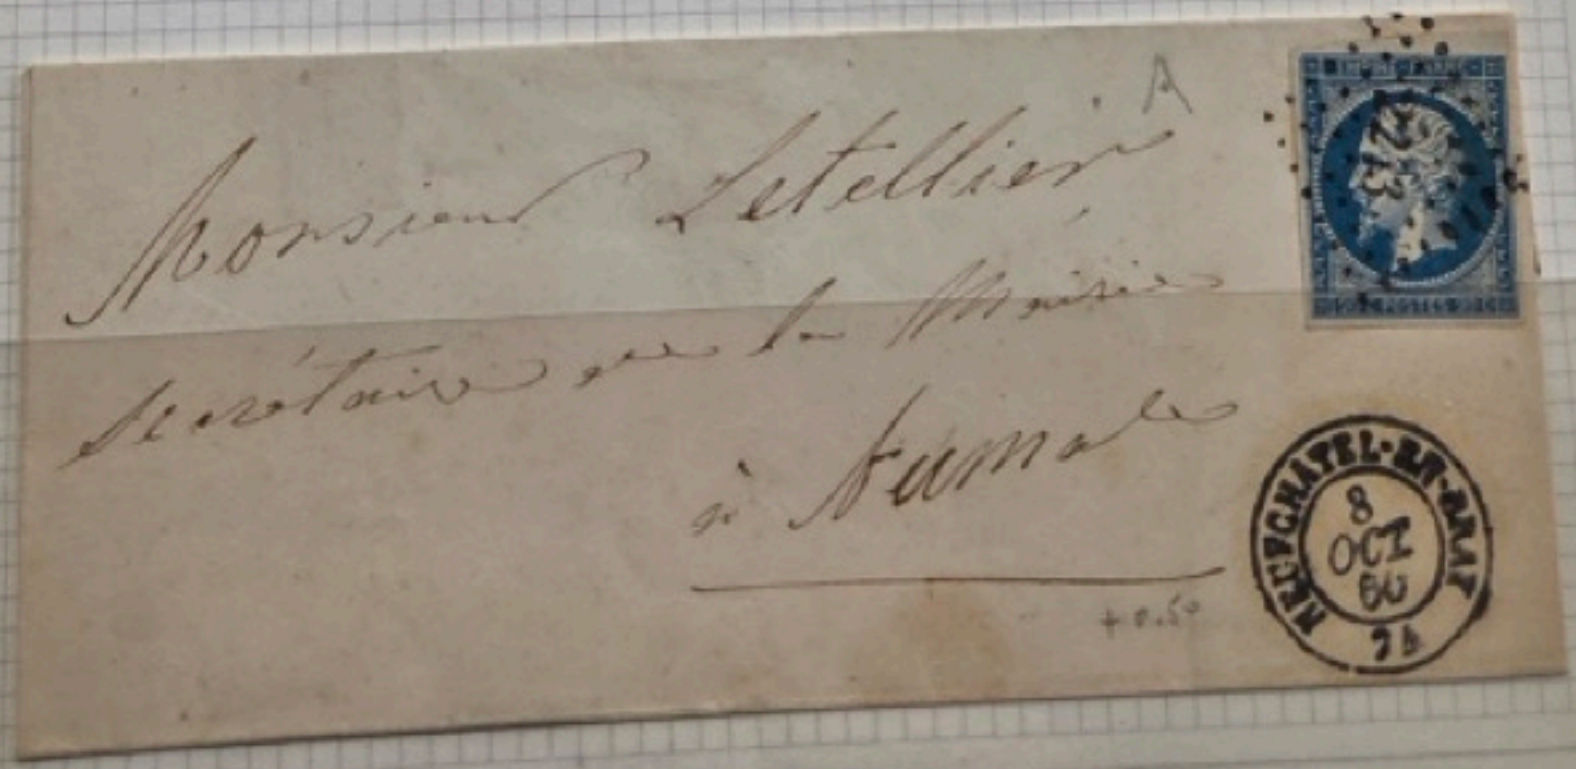 A
Monsieur Letellier
Secrétaire de la Mairie
à Aumale
+ 0.50
EMPIRE FRANC
NEUFCHATEL-EN-BRAY
8
OCT
60
74